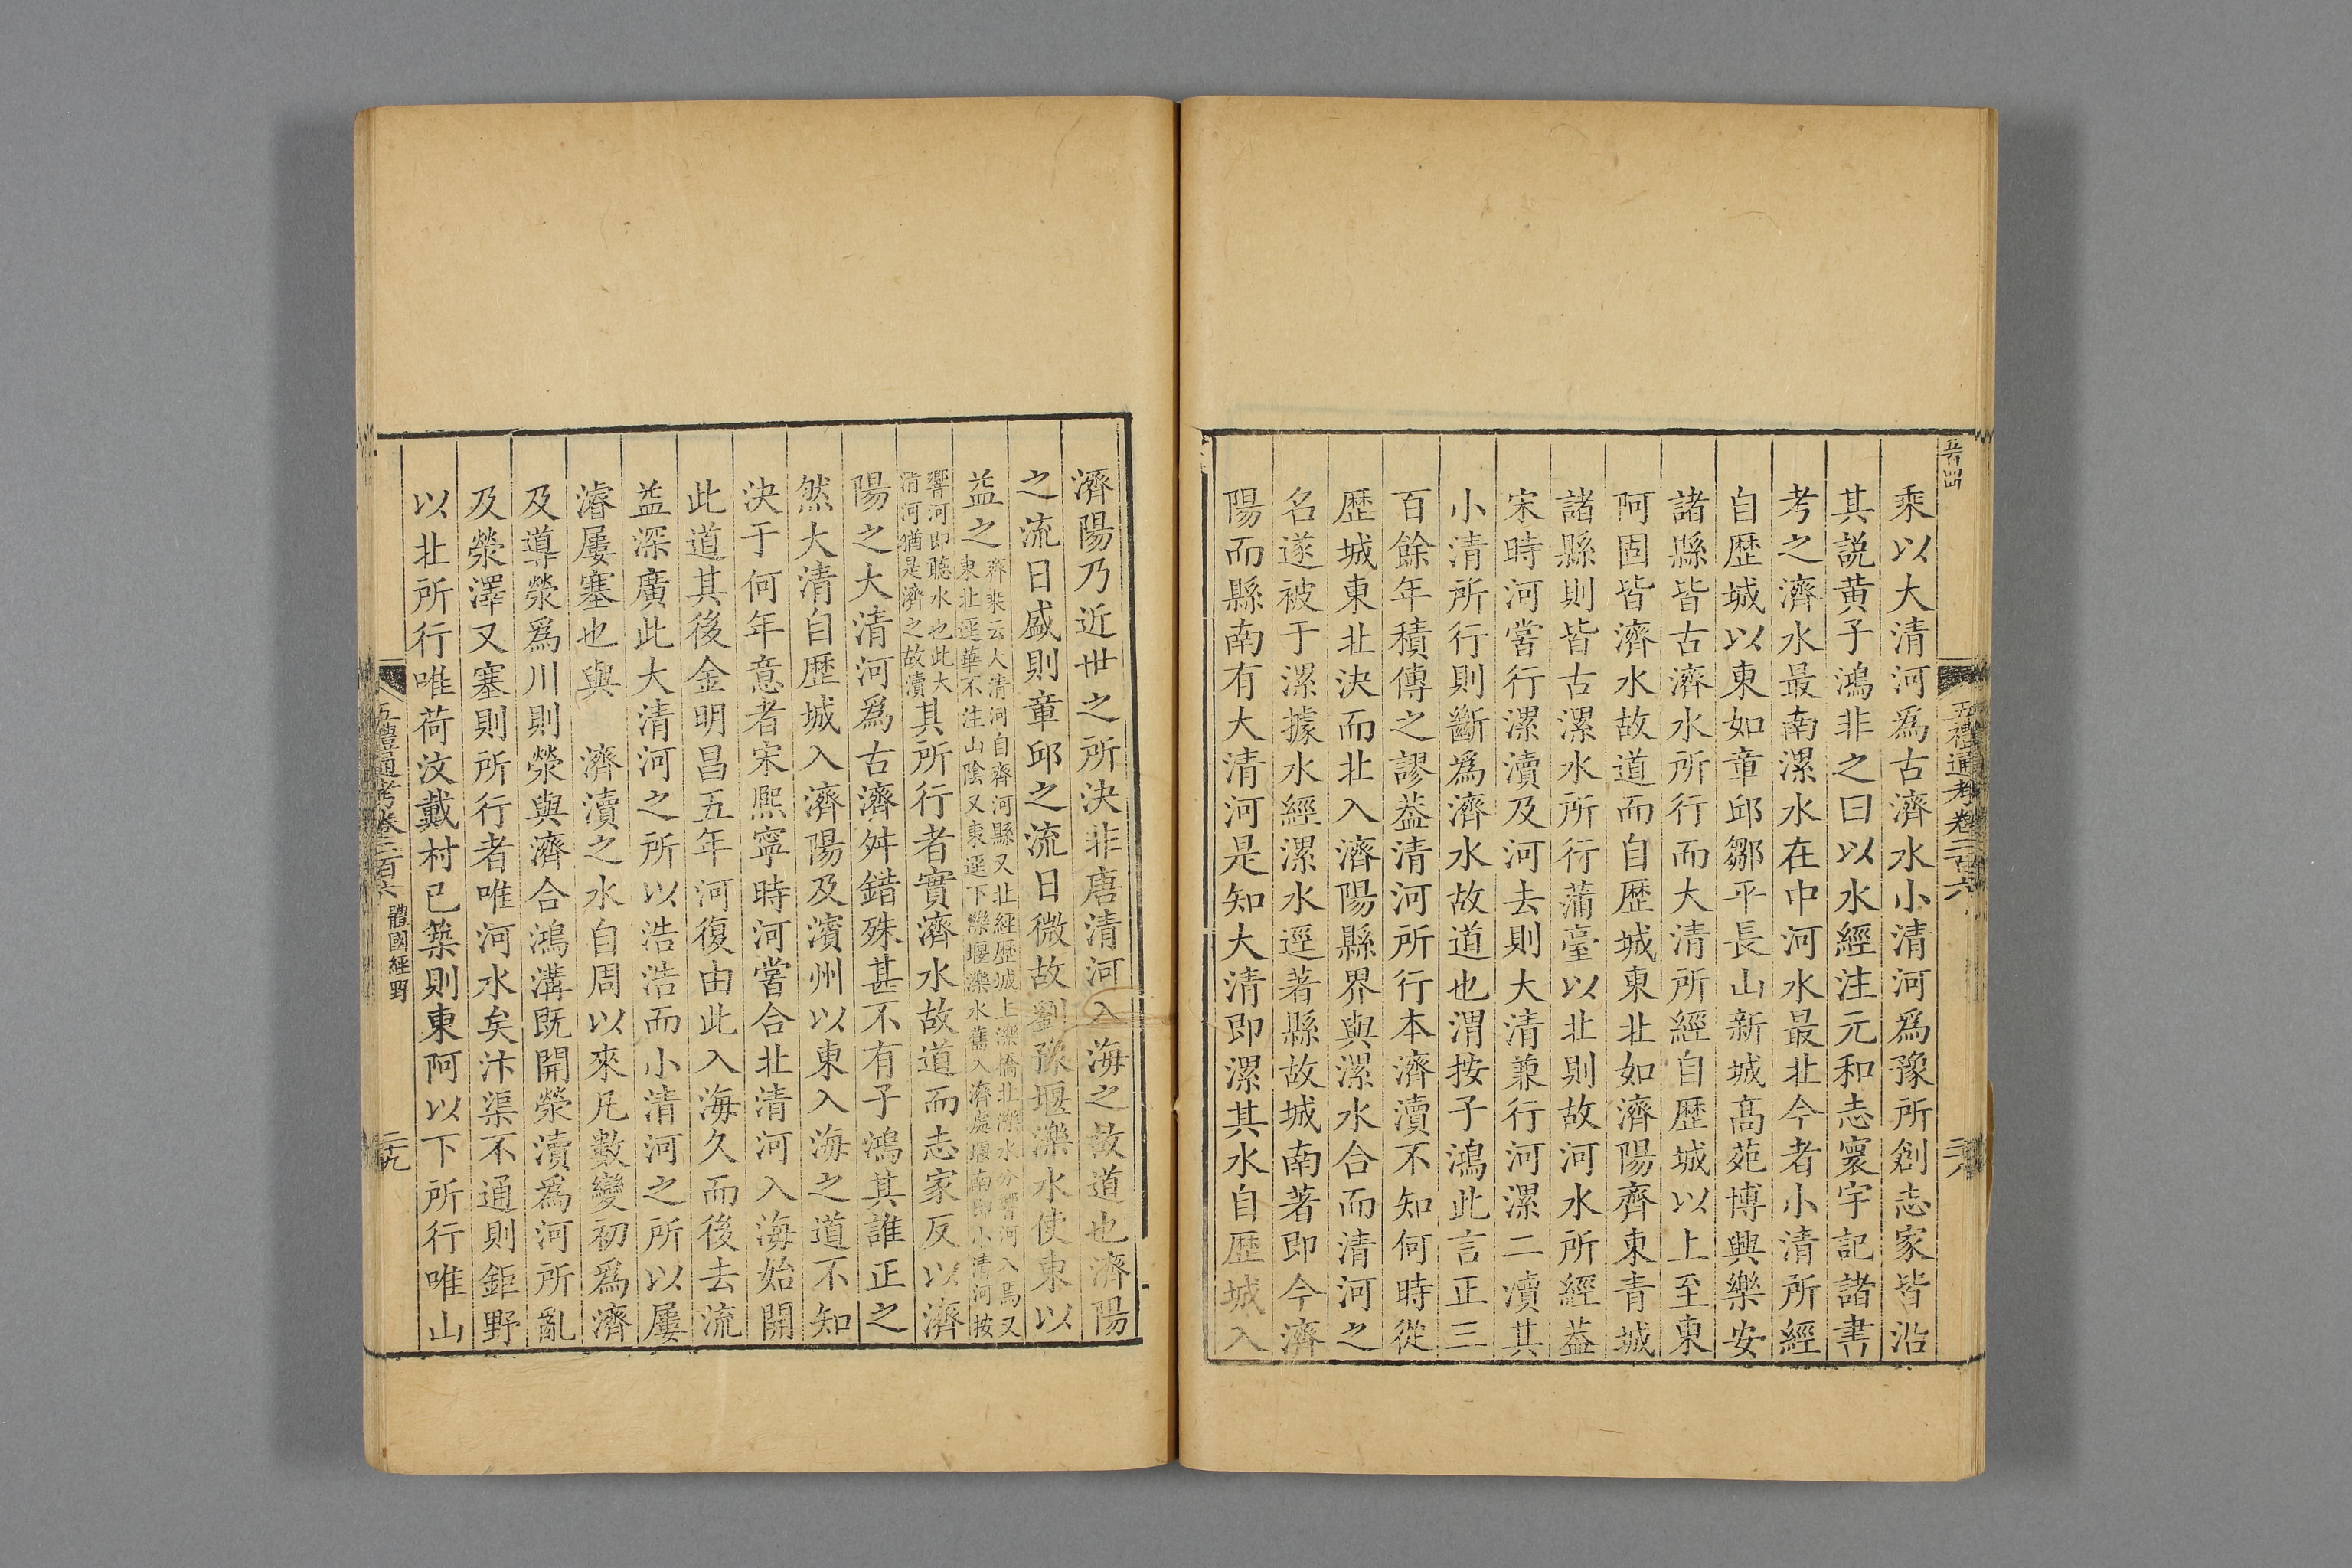 五禮通考卷二百六
乘以大清河爲古濟水小清河爲豫所創志家皆沿
其説黄子鴻非之曰以水經注元和志寰宇記諸書
考之濟水最南漯水在中河水最北今者小清所經
自歴城以東如章邱鄒平長山新城髙苑博興樂安
諸縣皆古濟水所行而大清所經自歴城以上至東
阿固皆濟水故道而自歴城東北如濟陽齊東青城
諸縣則皆古漯水所行蒲臺以北則故河水所經葢
宋時河嘗行漯瀆及河去則大清兼行河漯二瀆其
小清所行則斷爲濟水故道也渭按子鴻此言正三
百餘年積傳之謬葢清河所行本濟瀆不知何時從
歴城東北決而北入濟陽縣界與漯水合而清河之
名遂被于漯據水經漯水逕著縣故城南著即今濟
陽而縣南有大清河是知大清即漯其水自歴城入
濟陽乃近世之所決非唐清河入海之故道也濟陽
之流日盛則章邱之流日微故劉豫堰濼水使東以
益之齊乗云大清河自齊河縣又北經歴城上濼橋北濼水分響河入焉又
東北逕華不注山陰又東逕下濼堰濼水舊入濟處堰南即小清河按
響河即聽水也此大
清河猶是濟之故瀆其所行者實濟水故道而志家反以濟
陽之大清河爲古濟舛錯殊甚不有子鴻其誰正之
然大清自歴城入濟陽及濱州以東入海之道不知
決于何年意者宋熙寧時河嘗合北清河入海始開
此道其後金明昌五年河復由此入海久而後去流
益深廣此大清河之所以浩浩而小清河之所以屢
濬屢塞也與　濟瀆之水自周以來凡數變初爲濟
及導滎爲川則滎與濟合鴻溝既開滎瀆爲河所亂
及滎澤又塞則所行者唯河水矣汴渠不通則鉅野
以北所行唯荷汶戴村已築則東阿以下所行唯山
五禮通考卷二百六　體國經野
二十九